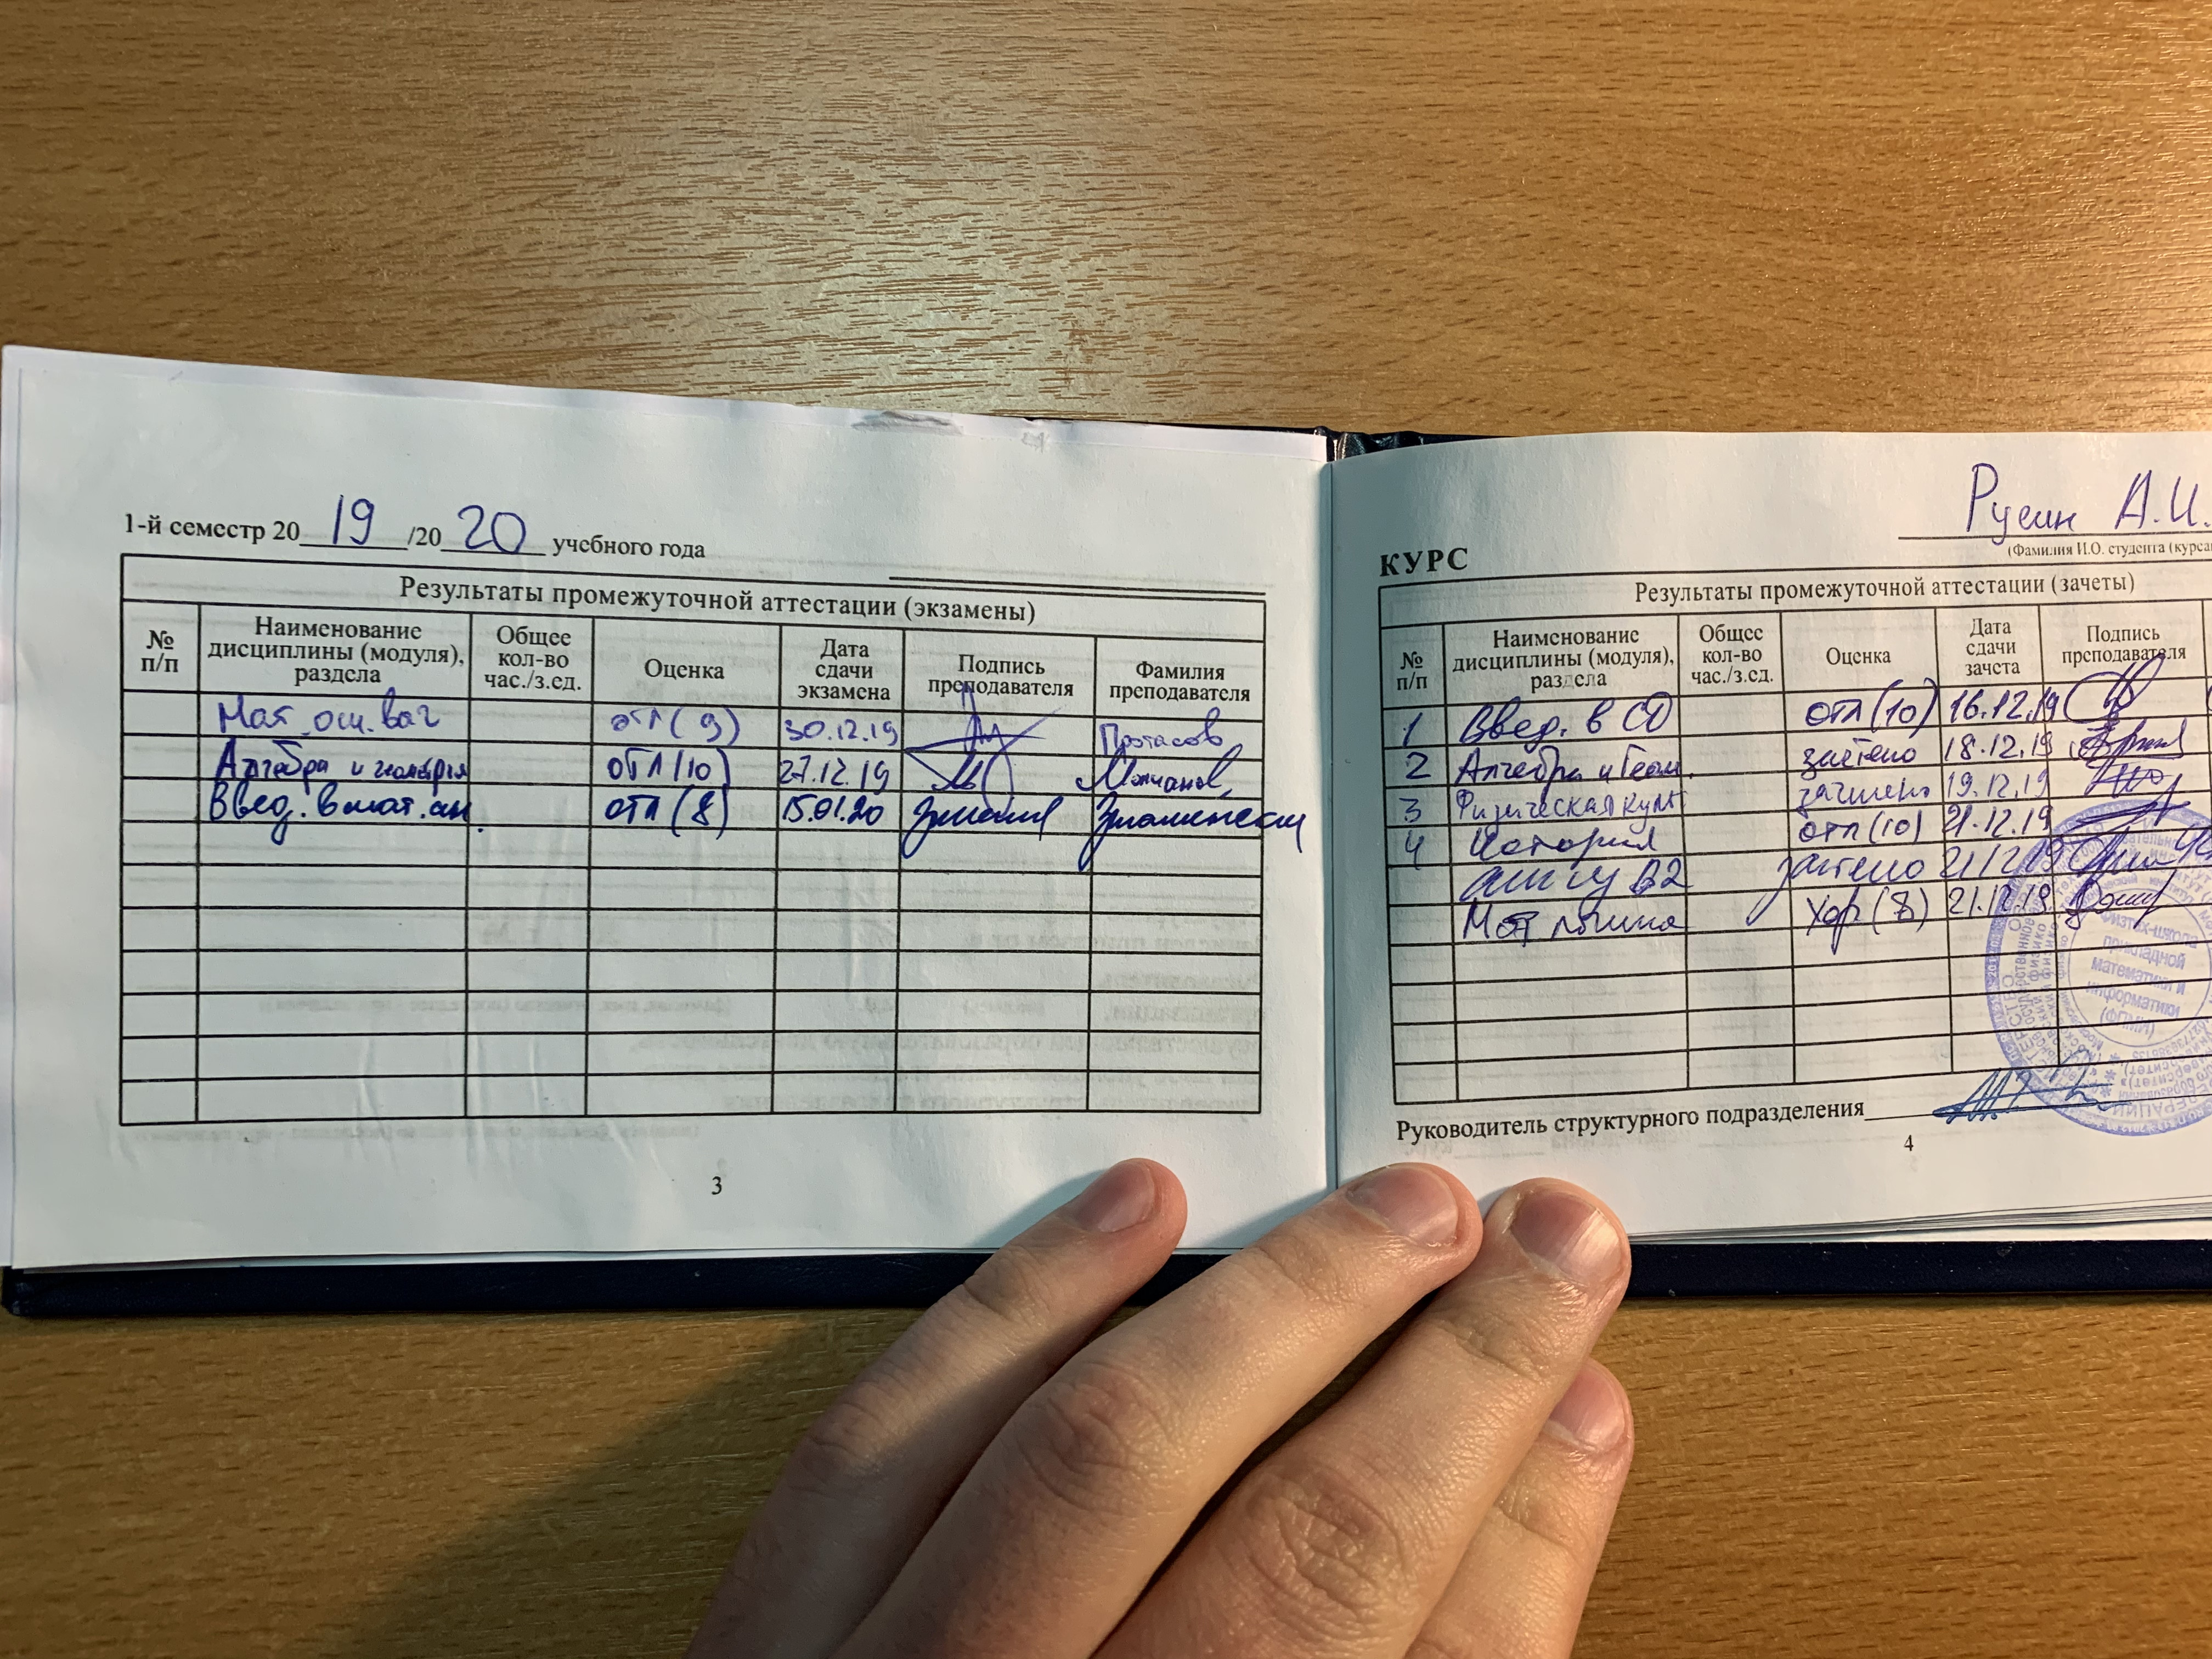 1-й семестр 20 19 /20 20 учебного года
Результаты промежуточной аттестации (экзамены)
№ п/п Наименование дисциплины (модуля), раздела Общее кол-во час./з.ед. Оценка Дата сдачи экзамена Подпись преподавателя Фамилия преподавателя
Мат. осн. выч отл (9) 30.12.19 Протасов
Алгебра и геометрия отл (10) 27.12.19 Молчанов
Введ. в мат. ан. отл (8) 15.01.20 Знаменская
3
Русин А.И.
КУРС
(Фамилия И.О. студента (курса
Результаты промежуточной аттестации (зачеты)
№ п/п Наименование дисциплины (модуля), раздела Общее кол-во час./з.ед. Оценка Дата сдачи зачета Подпись преподавателя
1 Введ. в отл (10) 16.12.19
2 Алгебра и Геом. зачтено 18.12.19
3 Физическая культ зачтено 19.12.19
4 История отл (10) 21.12.19
англ яз В2 зачтено 21 12 19
Мат логика хор (8) 21.12.19
физтех-школа
прикладной
математики и
информатики
(ФПМИ)
Руководитель структурного подразделения
4